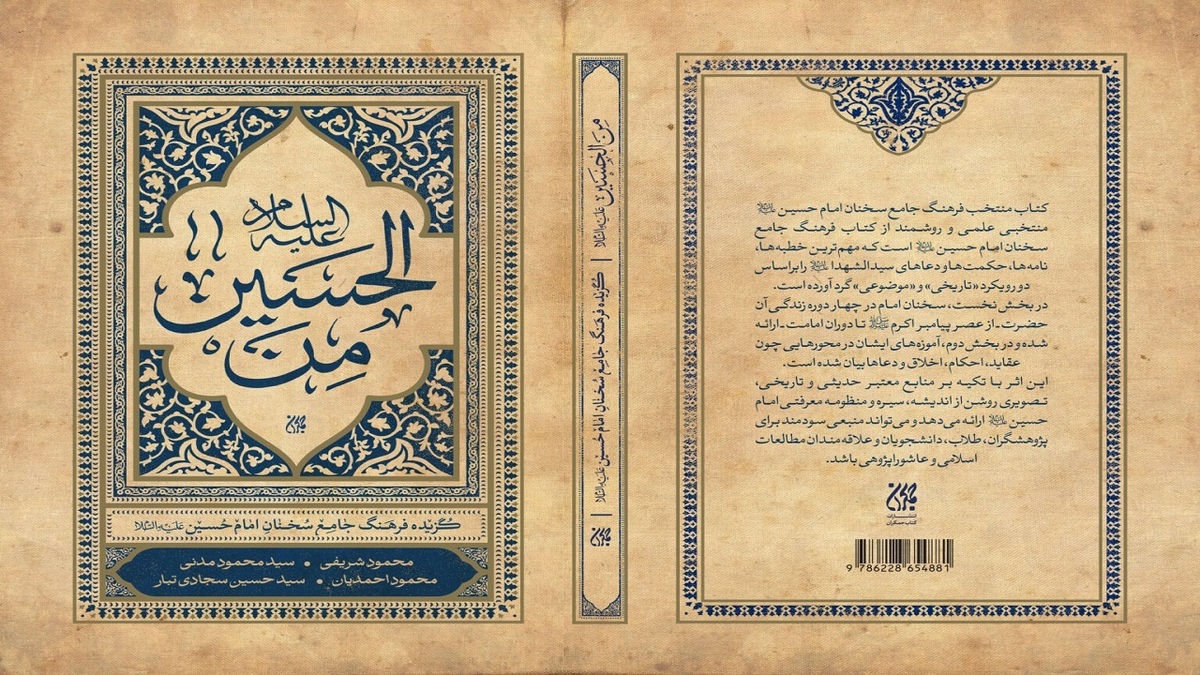 مِنَ
الحسَین
علیه السلام
گزیده فرهنگ جامع سخنان امام حسین علیه‌السّلام
محمود شریفی • سید محمود مدنی
محمود احمدیان • سید حسین سجادی تبار
مِنَ الحُسَین علیه‌السّلام | گزیده فرهنگ جامع سخنان امام حسین علیه‌السّلام
کتاب منتخب فرهنگ جامع سخنان امام حسین علیه‌السلام
منتخبی علمی و روشمند از کتاب فرهنگ جامع
سخنان امام حسین علیه‌السلام است که مهم‌ترین خطبه‌ها،
نامه‌ها، حکمت‌ها و دعاهای سیدالشهدا علیه‌السلام را براساس
دو رویکرد «تاریخی» و «موضوعی» گرد آورده است.
در بخش نخست، سخنان امام در چهار دوره زندگی آن
حضرت ـ از عصر پیامبر اکرم ﷺ تا دوران امامت ـ ارائه
شده و در بخش دوم، آموزه‌های ایشان در محورهایی چون
عقاید، احکام، اخلاق و دعاها بیان شده است.
این اثر با تکیه بر منابع معتبر حدیثی و تاریخی،
تصویری روشن از اندیشه، سیره و منظومه معرفتی امام
حسین علیه‌السلام ارائه می‌دهد و می‌تواند منبعی سودمند برای
پژوهشگران، طلاب، دانشجویان و علاقه‌مندان مطالعات
اسلامی و عاشوراپژوهی باشد.
انتشارات
کتاب جمکران
9 786228 654881